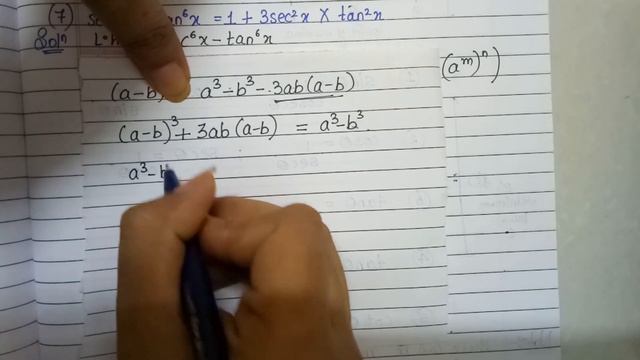 (7) an⁶x = 1 + 3sec²x × tan²x
Solⁿ c⁶x – tan⁶x
(aᵐ)ⁿ)
(a–b) a³ – b³ – 3ab(a–b)
(a–b)³ + 3ab(a–b) = a³–b³
a³–b